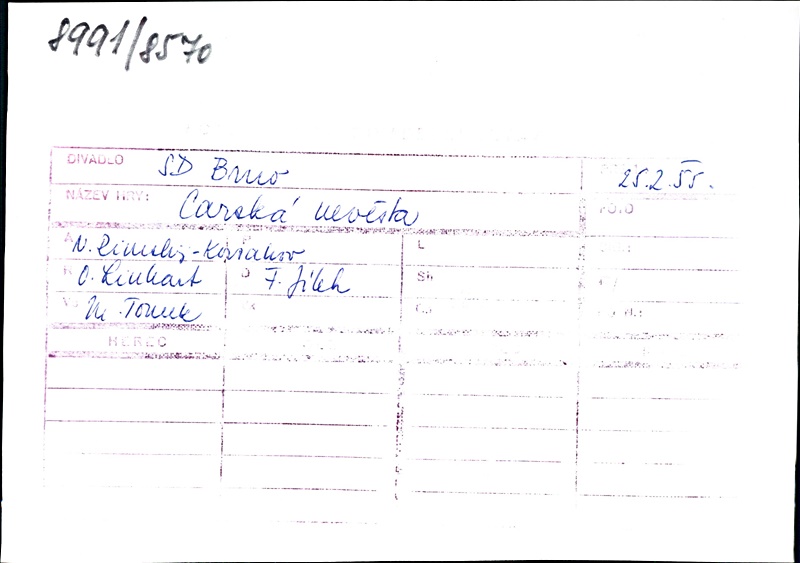 8991/8570
DIVADLO SD Brno 25.2.55.
NÁZEV HRY: Carská nevěsta FOTO
A N. Rimskij-Korsakov L
R O. Linhart D F. Jílek Sh
M. Tomek
HEREC